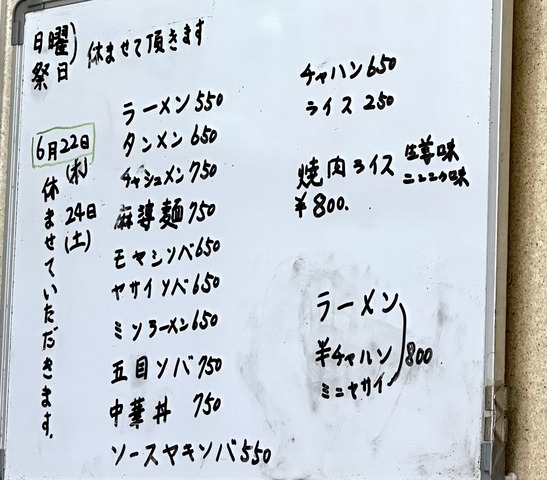 日曜
祭日
休ませて頂きます
6月22日
(木)
24日
(土)
休ませていただきます。
ラーメン550
タンメン650
チャシュメン750
麻婆麺750
モヤシソバ650
ヤサイソバ650
ミソラーメン650
五目ソバ750
中華丼 750
ソースヤキソバ550
チャハン650
ライス250
焼肉ライス
生姜味
ニンニク味
¥800.
ラーメン
半チャハン
ミニヤサイ
800